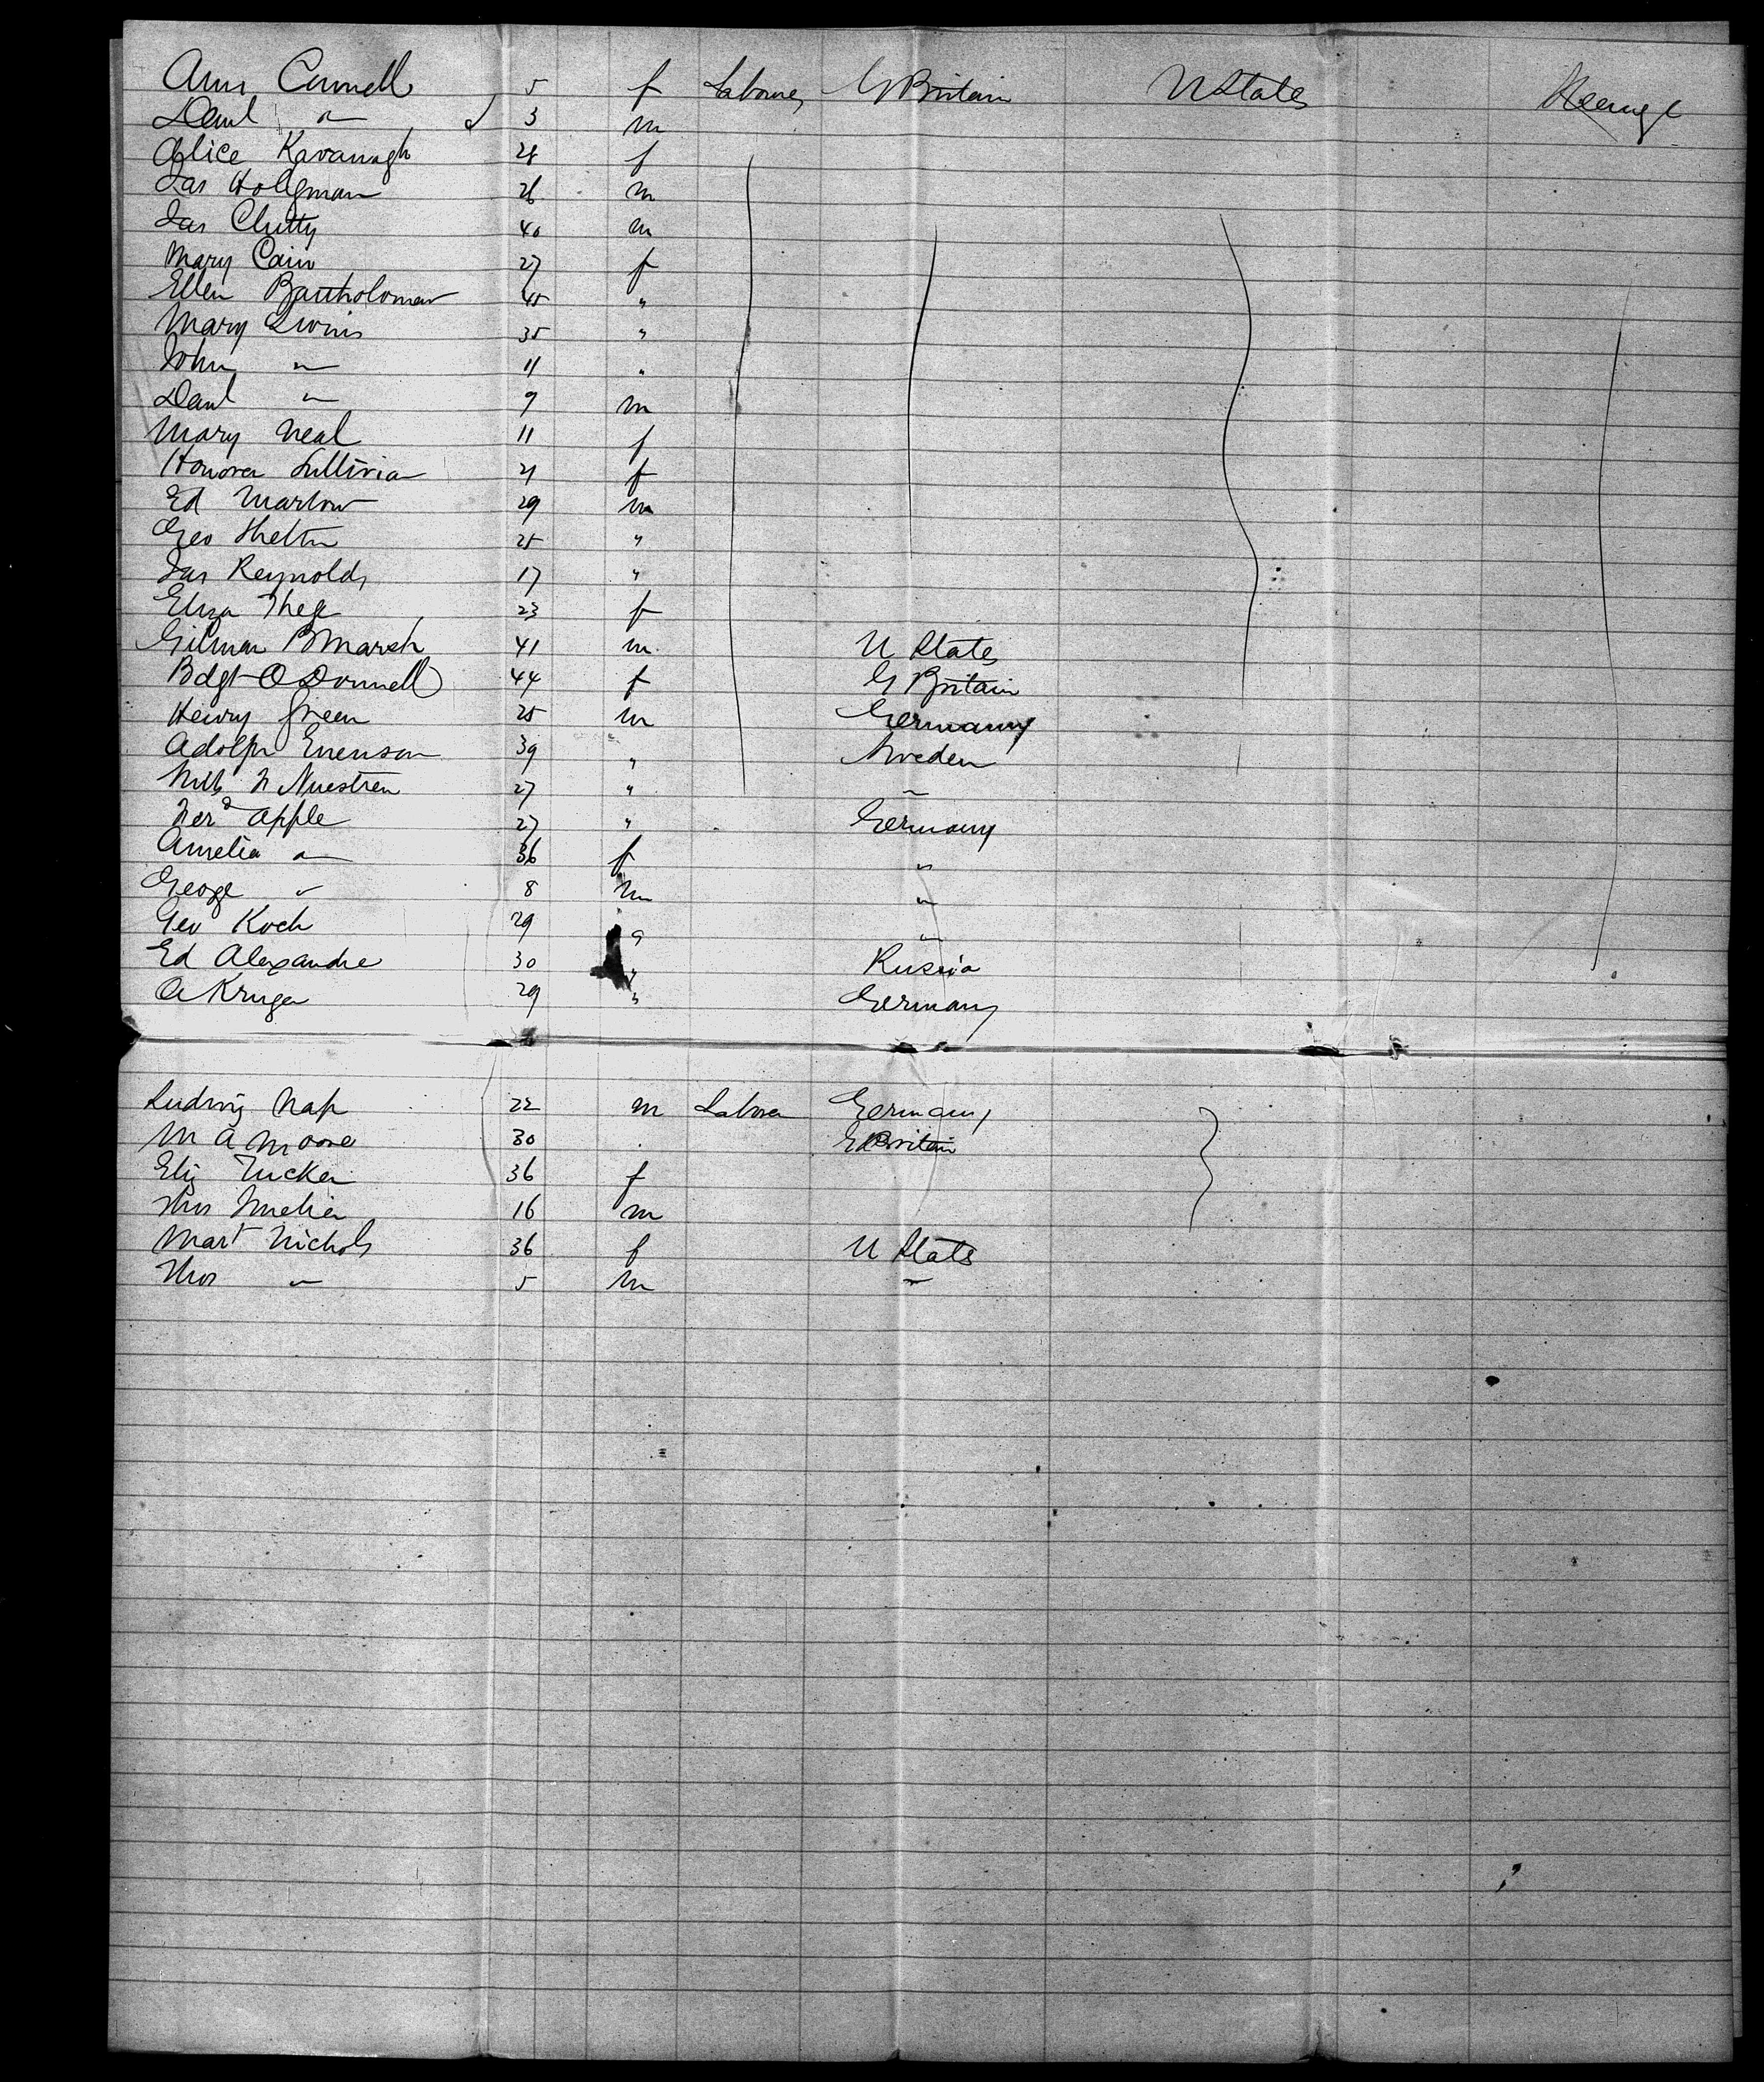 Ann Connell 5 f Laborer G Britain U States Steerage
Danl " 3 m
Alice Kavanagh 28 f
Jas Holcgman 26 m
Jas Clutty 40 m
Mary Cain 27 f
Ellen Bartholomew 45 "
Mary 35 "
John " 11 "
Danl " 9 m
Mary Neal 11 f
Honora Sullivia 21 f
Ed Marlow 29 m
Geo Shelton 25 "
Jas Reynolds 17 "
Eliza 23 f
Gilman B Marsh 41 m U States
Bdgt O Donnell 44 f G Britain
Henry Green 25 m Germany
Adolph Evenson 39 " Sweden
N 27 " "
Apple 27 " Germany
Amelia " 36 f "
George " 8 m "
Geo Koch 29 " "
Ed Alexandre 30 " Russia
A Kruger 29 " Germany
Ludwig Nap 22 m Laborer Germany
M A Moore 30 G Britain
Eliz Tucker 36 f
Thos 16 m
Mart Nichols 36 f U States
Thos " 5 m "